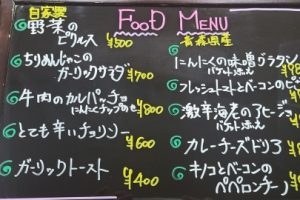 FOOD MENU
自家製
野菜の
ピクルス
¥500
ちりめんじゃこの
ガーリックサラダ
¥700
牛肉のカルパッチョ
にんにくチップのせ
¥800
とても辛いチョリソー
¥600
ガーリックトースト
¥400
青森県産
にんにくの味噌グラタン
バゲット添え
フレッシュトマトとベーコンのピ
激辛海老のアヒージョ
バゲット添え
カレーチーズドリア
キノコとベーコンの
ペペロンチーノ